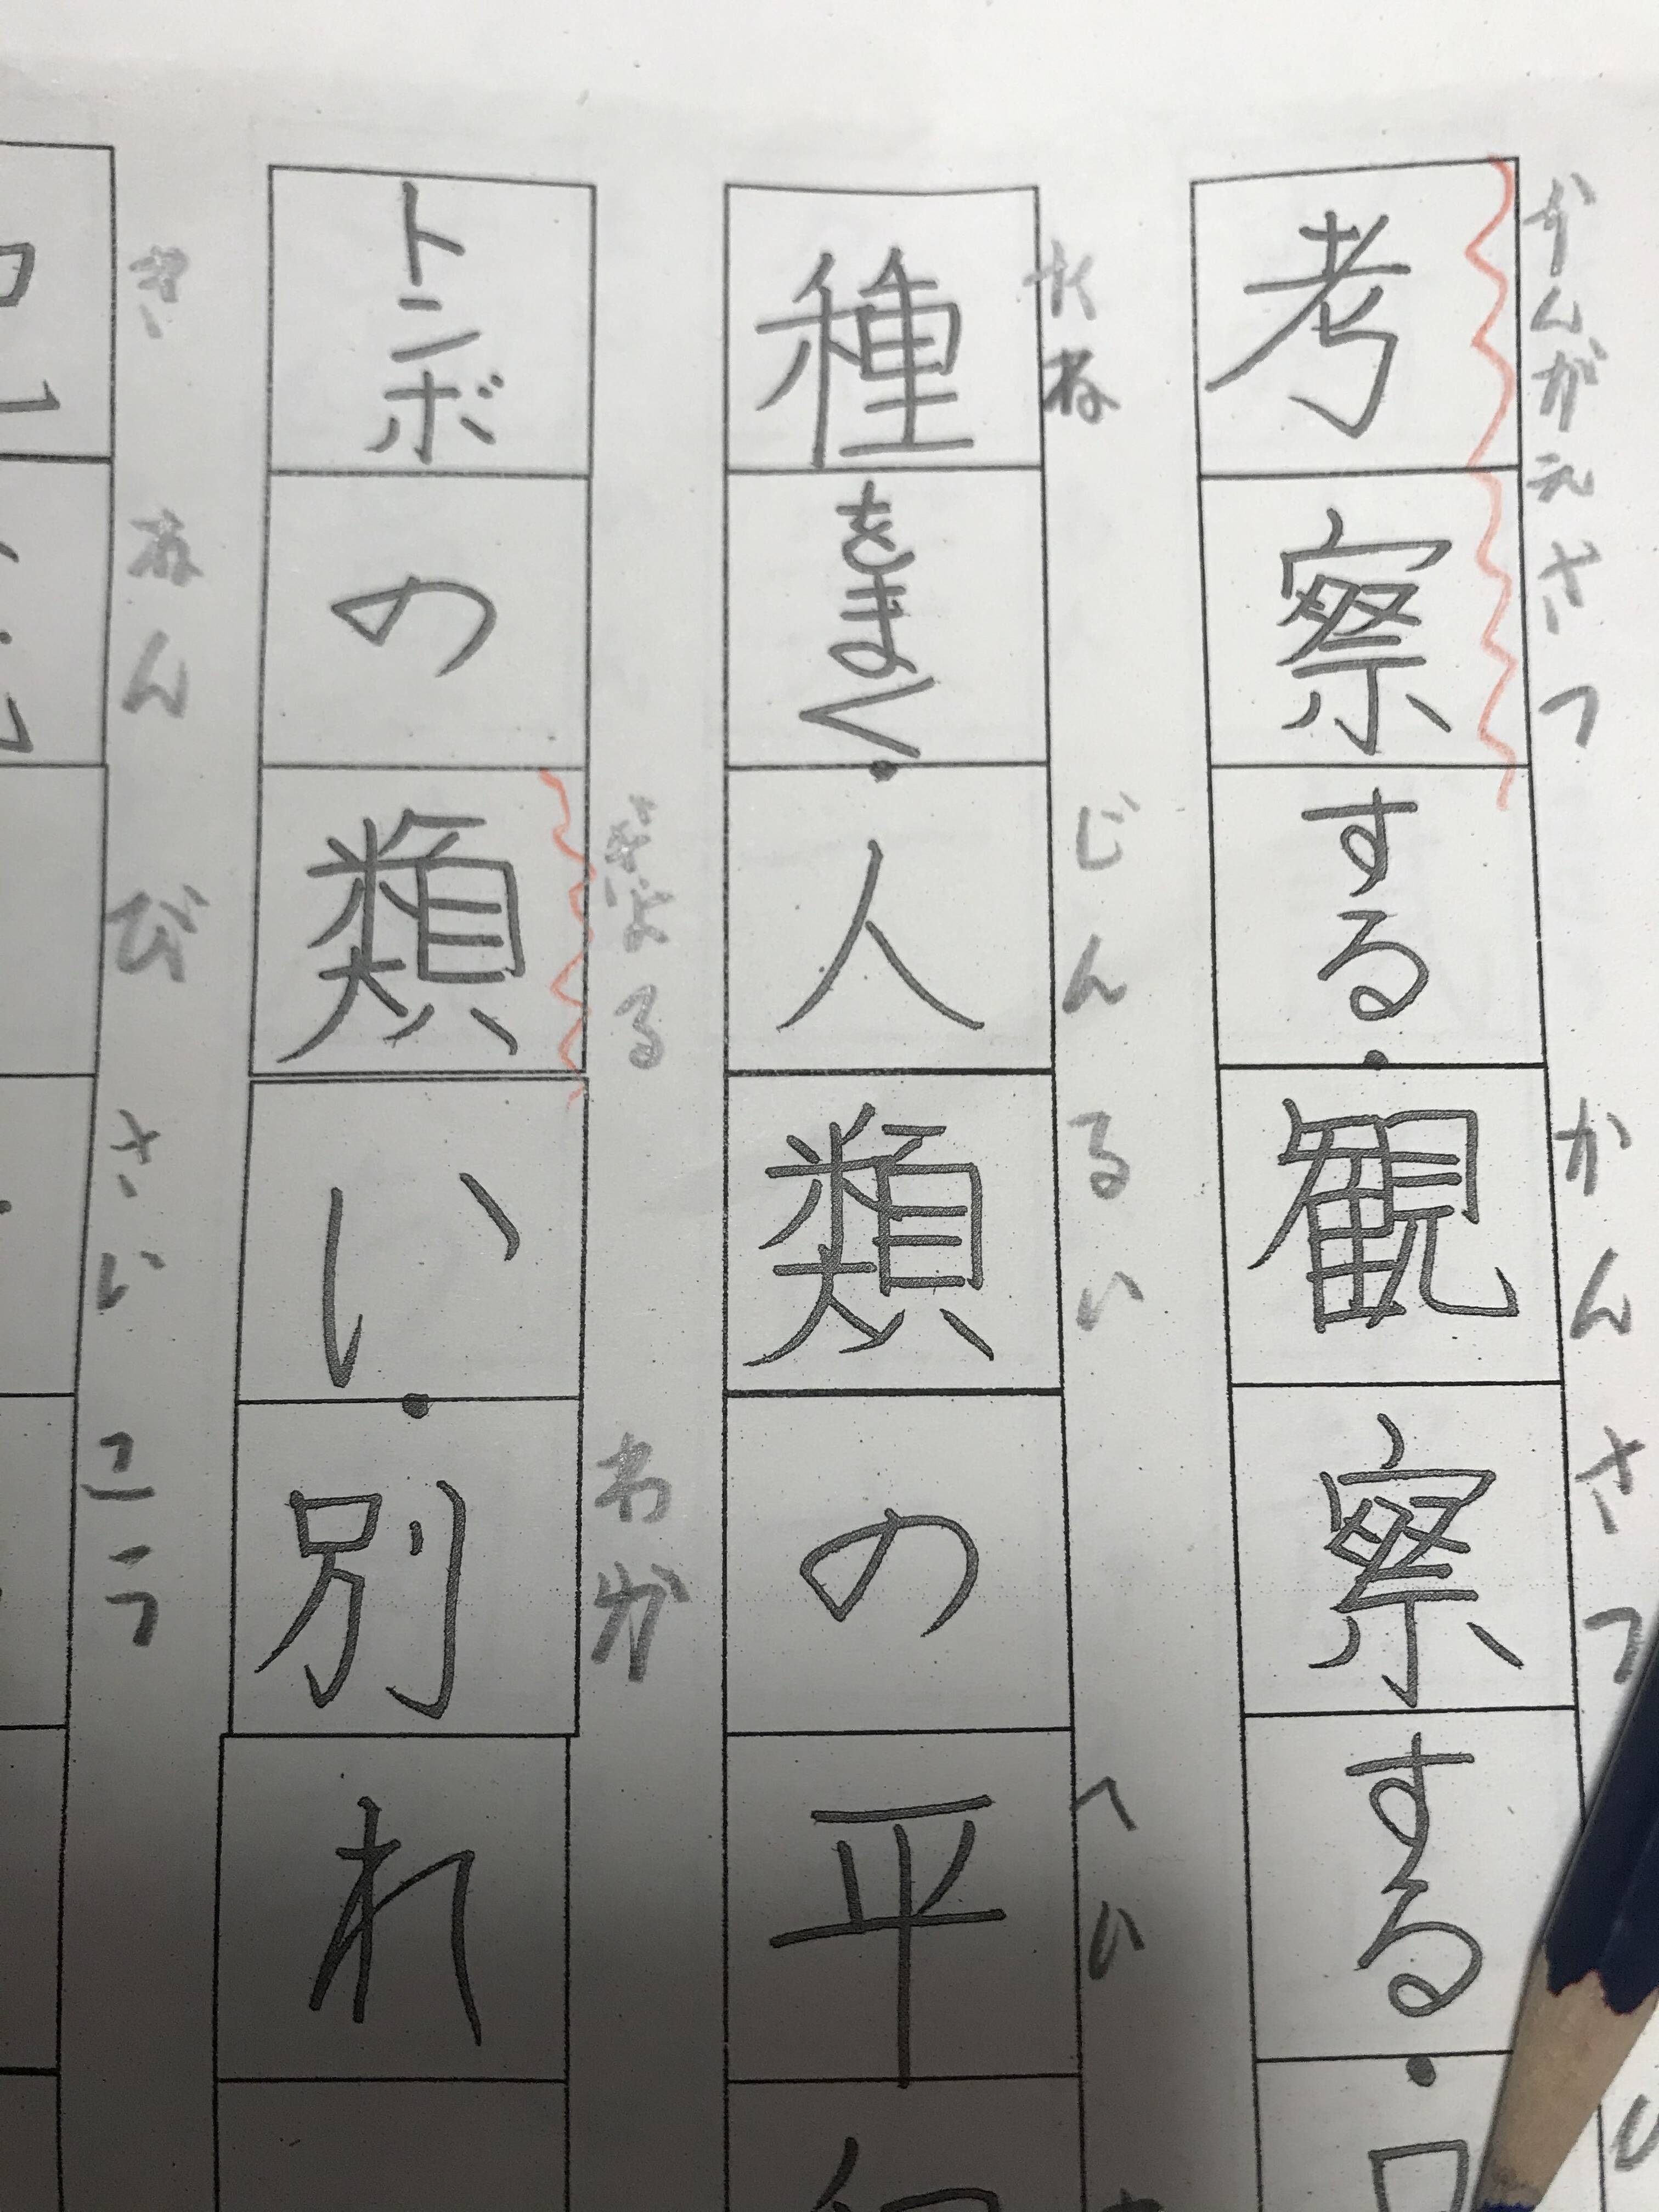 考察する・観察する・
かんがえさつ かんさつ
種をまく・人類の平
たね じんるい へい
トンボの類い・別れ
ぎょる わか
きねん び さいこう